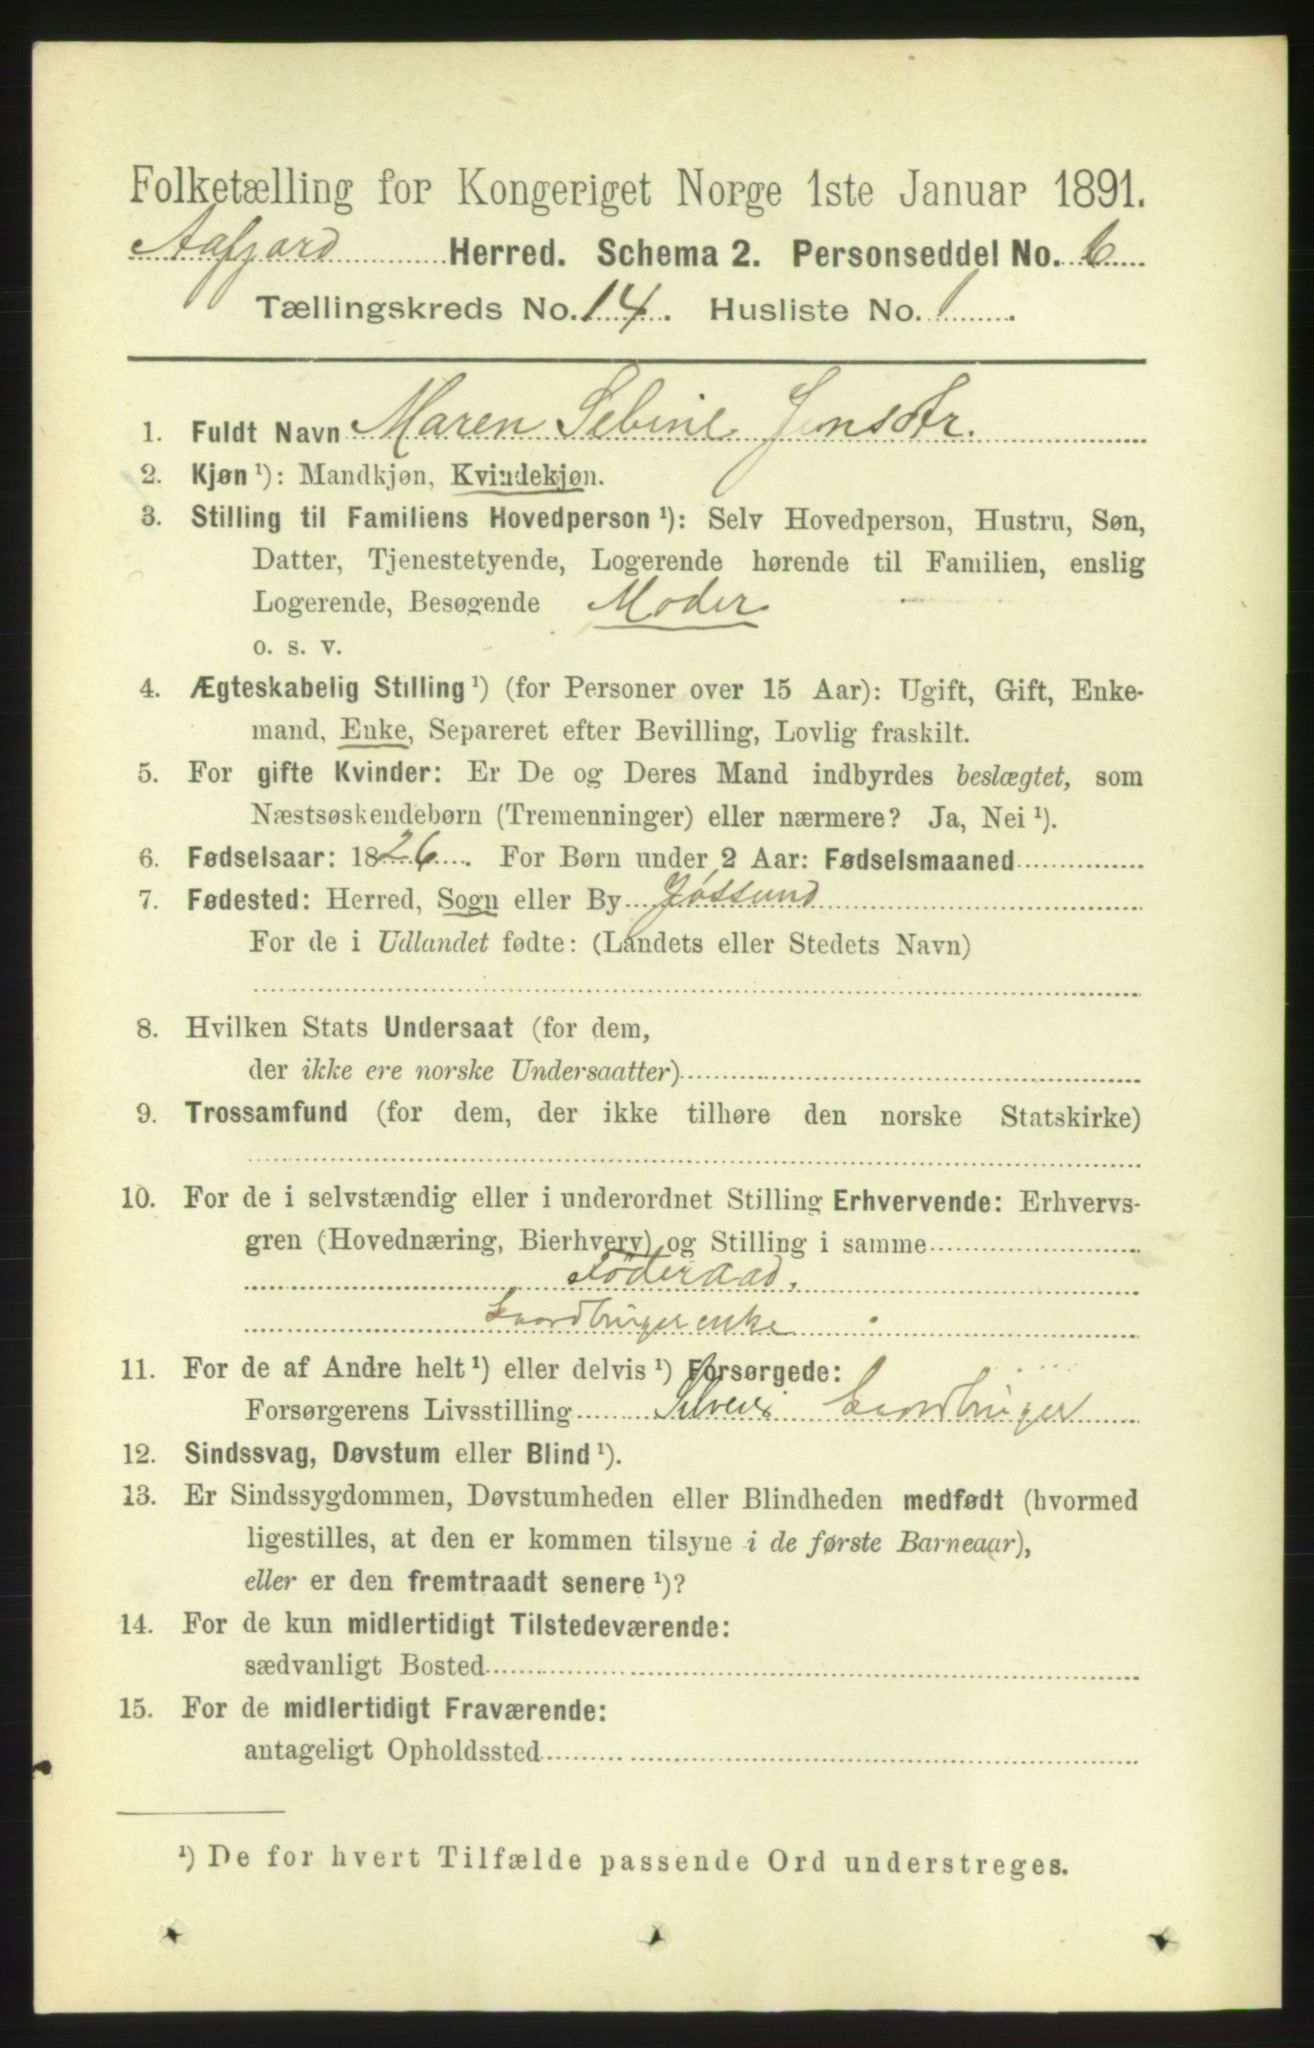 Folketælling for Kongeriget Norge 1ste Januar 1891.
Aafjord Herred. Schema 2. Personseddel No. 6
Tællingskreds No. 14. Husliste No. 1
1. Fuldt Navn Maren Sebine Jensdtr.
2. Kjøn ¹): Mandkjøn, Kvindekjøn.
3. Stilling til Familiens Hovedperson ¹): Selv Hovedperson, Hustru, Søn,
Datter, Tjenestetyende, Logerende hørende til Familien, enslig
Logerende, Besøgende Moder
o. s. v.
4. Ægteskabelig Stilling ¹) (for Personer over 15 Aar): Ugift, Gift, Enke-
mand, Enke, Separeret efter Bevilling, Lovlig fraskilt.
5. For gifte Kvinder: Er De og Deres Mand indbyrdes beslægtet, som
Næstsøskendebørn (Tremenninger) eller nærmere? Ja, Nei ¹).
6. Fødselsaar: 1826. For Børn under 2 Aar: Fødselsmaaned
7. Fødested: Herred, Sogn eller By Jøssund
For de i Udlandet fødte: (Landets eller Stedets Navn)
8. Hvilken Stats Undersaat (for dem,
der ikke ere norske Undersaatter)
9. Trossamfund (for dem, der ikke tilhøre den norske Statskirke)
10. For de i selvstændig eller i underordnet Stilling Erhvervende: Erhvervs-
gren (Hovednæring, Bierhverv) og Stilling i samme
Föderaad.
Gaardbrugerenke
11. For de af Andre helt ¹) eller delvis ¹) Forsørgede:
Forsørgerens Livsstilling Gaardbruger
12. Sindssvag, Døvstum eller Blind ¹).
13. Er Sindssygdommen, Døvstumheden eller Blindheden medfødt (hvormed
ligestilles, at den er kommen tilsyne i de første Barneaar),
eller er den fremtraadt senere ¹)?
14. For de kun midlertidigt Tilstedeværende:
sædvanligt Bosted
15. For de midlertidigt Fraværende:
antageligt Opholdssted
¹) De for hvert Tilfælde passende Ord understreges.